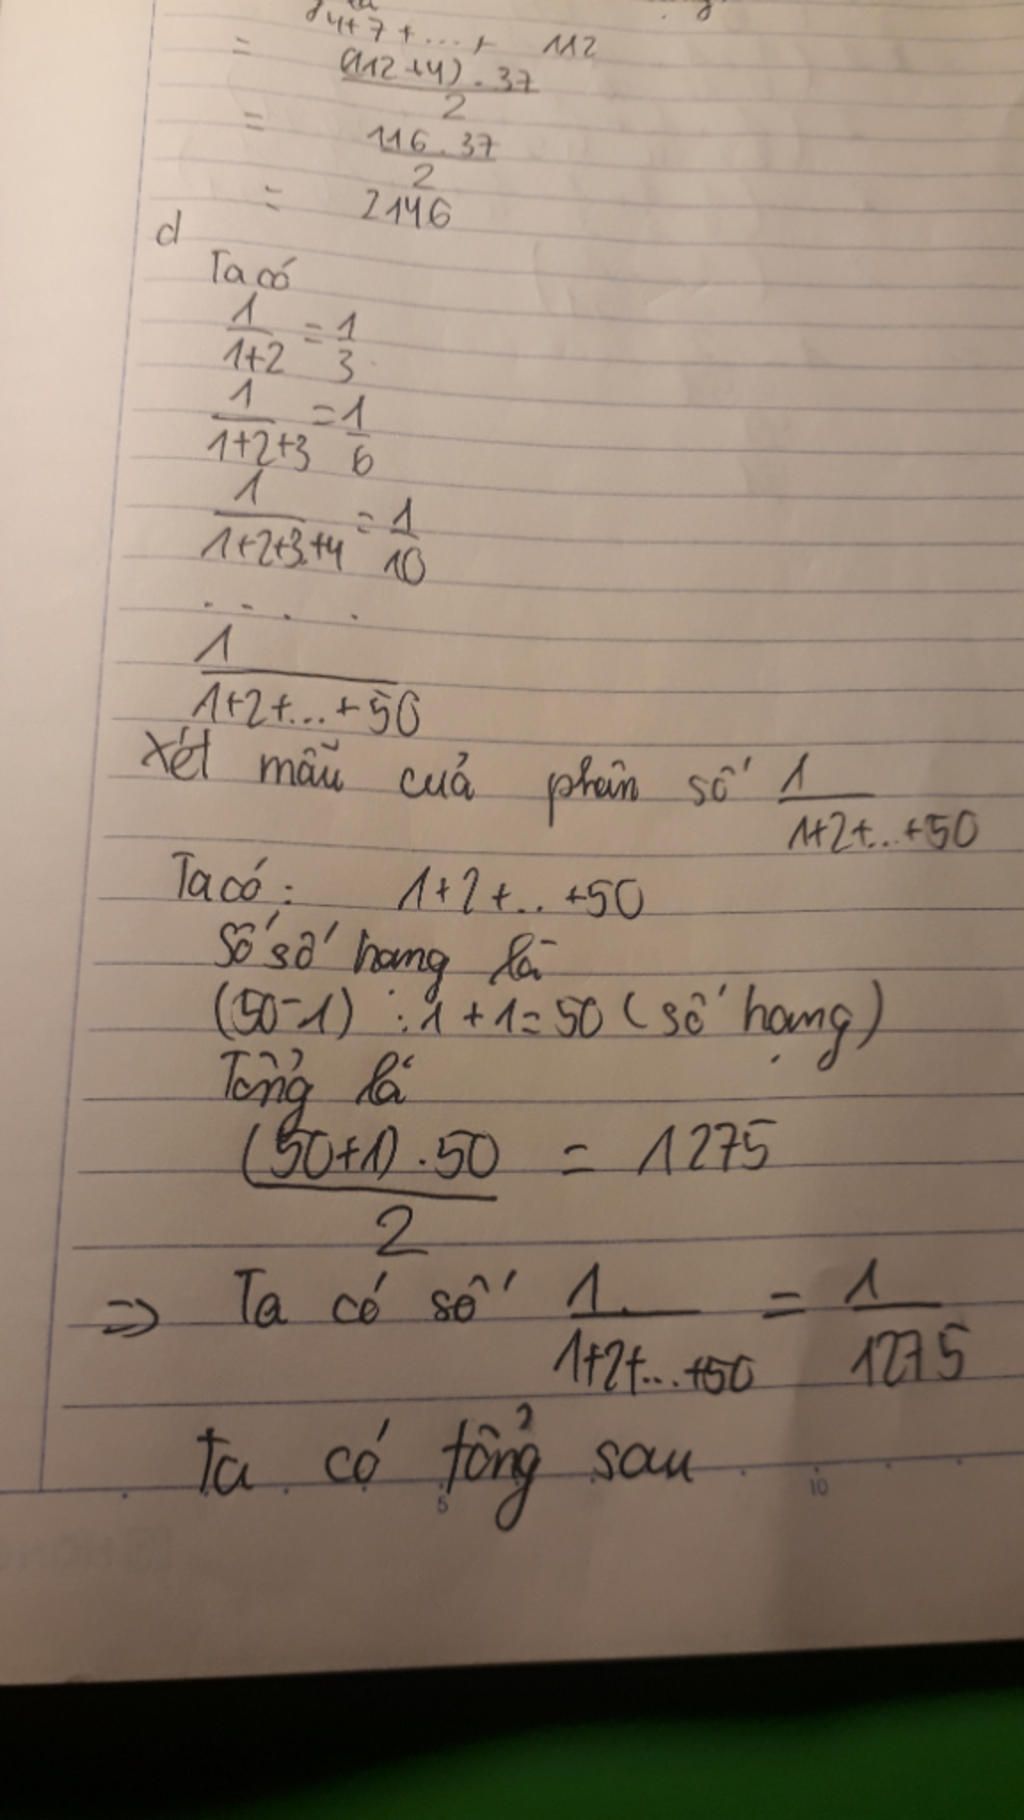 4+7+...+ 112
= (112+4).37 / 2
= 116.37 / 2
= 2146
d
Ta có
1/(1+2) = 1/3
1/(1+2+3) = 1/6
1/(1+2+3+4) = 1/10
....
1/(1+2+...+50)
Xét mẫu của phân số 1/(1+2+...+50)
Ta có: 1+2+...+50
Số số hang là
(50-1) :1+1=50 (số hạng)
Tổng là
(50+1).50 / 2 = 1275
=> Ta có số 1/(1+2+...+50) = 1/1275
Ta có tổng sau
5 10